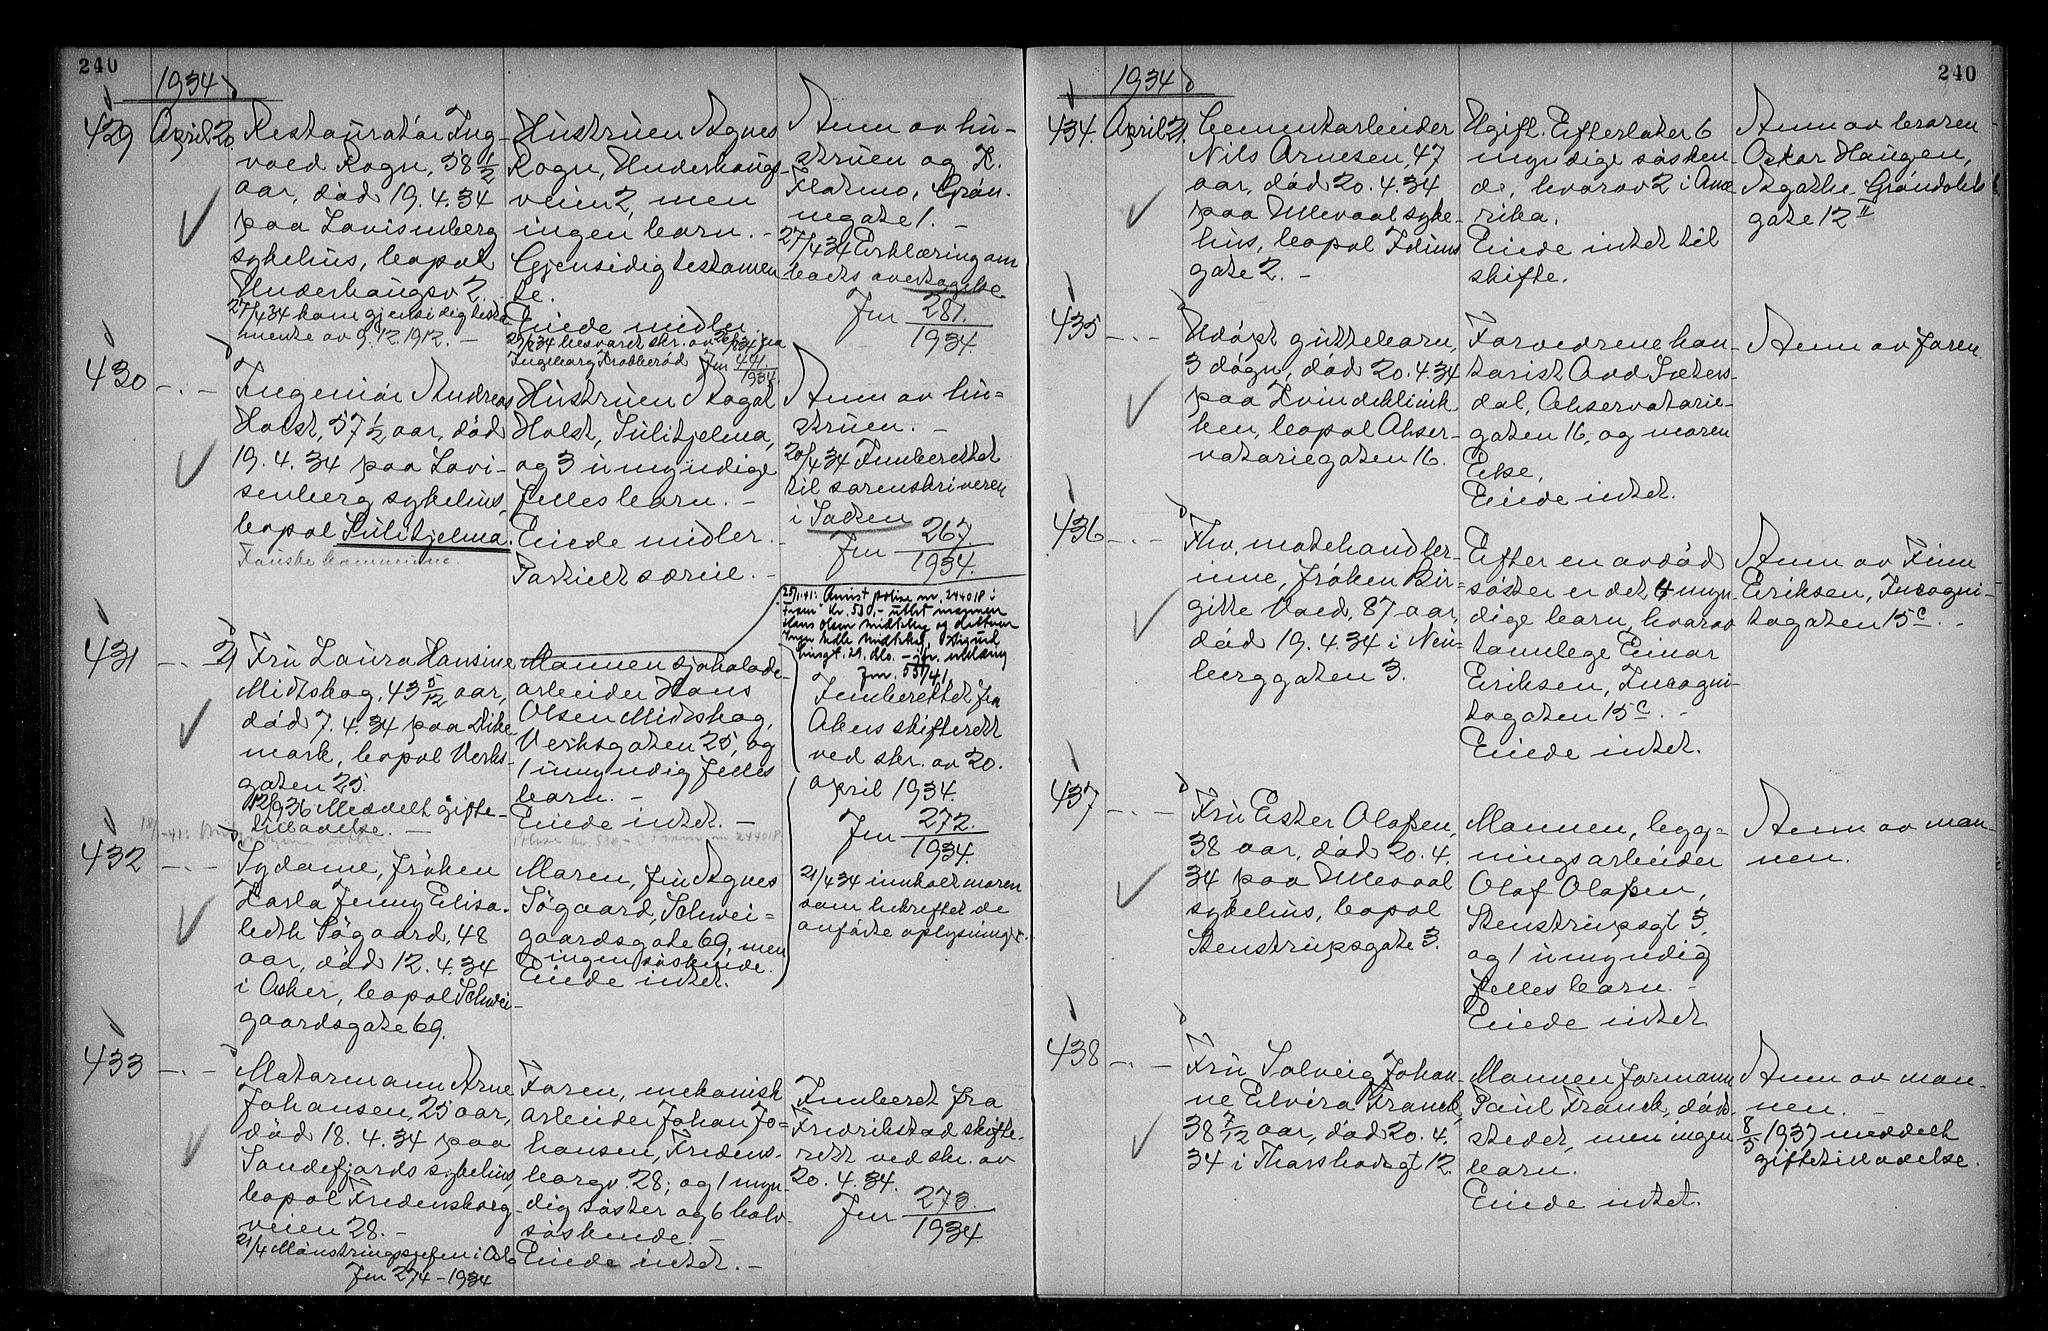 240
1934
429
April 20.
Restauratør Ing-
vald Rogn, 58 1/2
aar, død 19.4.34
paa Lovisenberg
sykehus, bopæl
Underhaugsv 2.
27/4 34 kom gjensidig testa-
mente av 9.12.1912. -
Hustruen Agnes
Rogn, Underhaugs-
veien 2, men
ingen barn. -
Gjensidig testamen
te.
Eiede midler.
Anm av hu-
struen og K.
Flatmo, Grøn-
negate 1. -
27/4 34 Erklæring om
boets overtagelse
Jnr 281.
1934.
430
- . -
Ingeniør Andreas
Holst, 57 1/2 aar, død
19.4.34 paa Lovi-
senberg sykehus,
bopæl Sulitjelma.
Fauske kommune.
Hustruen Magat
Holst, Sulitjelma,
og 3 umyndige
felles barn. -
Eiede midler. -
Partielt særeie. -
Anm av hu-
struen. -
20/4 34 Innberettet
til sorenskriveren
i Salten
Jnr 267.
1934.
431
- . - 21
Fru Laura Hansine
Midtskog, 43 5/12 aar,
død 7.4.34 paa Dike
mark, bopæl Verks-
gaten 25.
12/9 36 Meddelt gifte-
tilladelse. -
Mannen sjokolade-
arbeider Hans
Olsen Midtskog,
Verksgaten 25, og
1 umyndig felles
barn. -
Eiede intet. -
Innberettet fra
Akers skifterett
ved skr. av 20.
april 1934.
Jnr 272.
1934.
432
- . -
Sydame, frøken
Karla Jenny Elisa-
beth Søgaard, 48
aar, død 12.4.34
i Asker, bopæl Schwei-
gaardsgate 69.
Moren, fru Agnes
Søgaard, Schwei=
gaardsgate 69, men
ingen søskende.
Eiede intet.
21/4 34 innkalt moren
som bekreftet de
anførte oplysninger.
433
- . -
Motormann Arne
Johansen, 25 aar,
død 18.4.34 paa
Sandefjords sykehus,
bopæl Fredensborg-
veien 28. -
21/4 Mønstringssjefen i Oslo
Jnr 274-1934
Faren, mekanisk
arbeider Johan Jo=
hansen, Fredens-
borgv. 28; og 1 myn-
dig søster og 6 halv-
søskende. -
Eiede intet. -
Innberet fra
Fredrikstad skifte-
rett ved skr. av
20.4.34.
Jnr 273.
1934.
240
1934
434.
April 21.
Cementarbeider
Nils Arnesen, 47
aar, død 20.4.34
paa Ullevaal syke-
hus, bopæl Iduns
gate 2. -
Ugift. Efterlater 6
myndige søsken-
de, hvorav 2 i Ame
rika.
Eiede intet til
skifte.
Anm av broren
Oskar Haugen,
Agathe Grøndahls
gate 12 II
435
- . -
Udøpt guttebarn,
3 døgn, død 20.4.34
paa Kvindeklinik-
ken, bopæl Obser-
vatoriegaten 16.
Forældrene kon-
torist Odd Sæters-
dal, Observatorie-
gaten 16, og moren
Else.
Eiede intet.
Anm av faren.
436
- . -
Fhv. motehandler-
inne, frøken Bir-
gitte Vold, 87 aar,
død 19.4.34 i Neu-
berggaten 3.
Efter en avdød
søster er det 4 myn
dige barn, hvorav
tannlege Einar
Eriksen, Incogni-
togaten 15 c. -
Eiede intet.
Anm av Finn
Eriksen, Incogni-
togaten 15 c. -
437
- . -
Fru Ester Olafsen,
38 aar, død 20.4.
34 paa Ullevaal
sykehus, bopæl
Stenstrupsgate 3.
Mannen, legg=
ningsarbeider
Olaf Olafsen,
Stenstrupsgt 3,
og 1 umyndig
felles barn. -
Eiede intet
Anm av man-
nen.
438
- . -
Fru Solveig Johan-
ne Elvira Franck,
38 7/12 aar, død 20.4.
34 i Thorshovsgt 12.
Mannen formann
Paul Franck, døds-
stedet, men ingen
barn.
Eiede intet.
Anm av man-
nen. -
8/5 1937 meddelt
giftetilladelse.